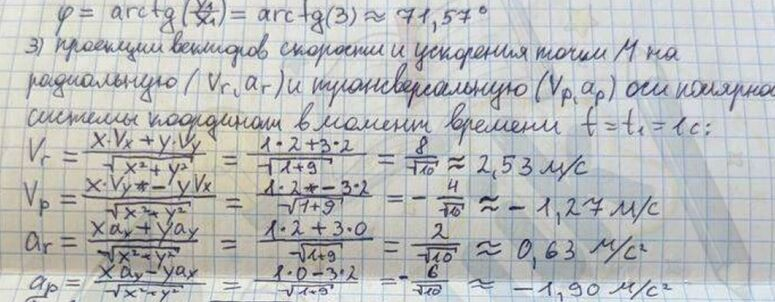 φ = arctg(y₁/x₁) = arctg(3) ≈ 71,57°
3) проекции векторов скорости и ускорения точки М на
радиальную (Vr, ar) и трансверсальную (Vp, ap) оси полярной
системы координат в момент времени t = t₁ = 1с:
Vr = (x·Vx + y·Vy)/√(x² + y²) = (1·2 + 3·2)/√(1+9) = 8/√10 ≈ 2,53 м/с
Vp = (x·Vy - yVx)/√(x² + y²) = (1·2 - 3·2)/√(1+9) = - 4/√10 ≈ - 1,27 м/с
ar = (xax + yay)/√(x² + y²) = (1·2 + 3·0)/√(1+9) = 2/√10 ≈ 0,63 м/с²
ap = (xay - yax)/√(x² + y²) = (1·0 - 3·2)/√(1+9) = - 6/√10 ≈ - 1,90 м/с²